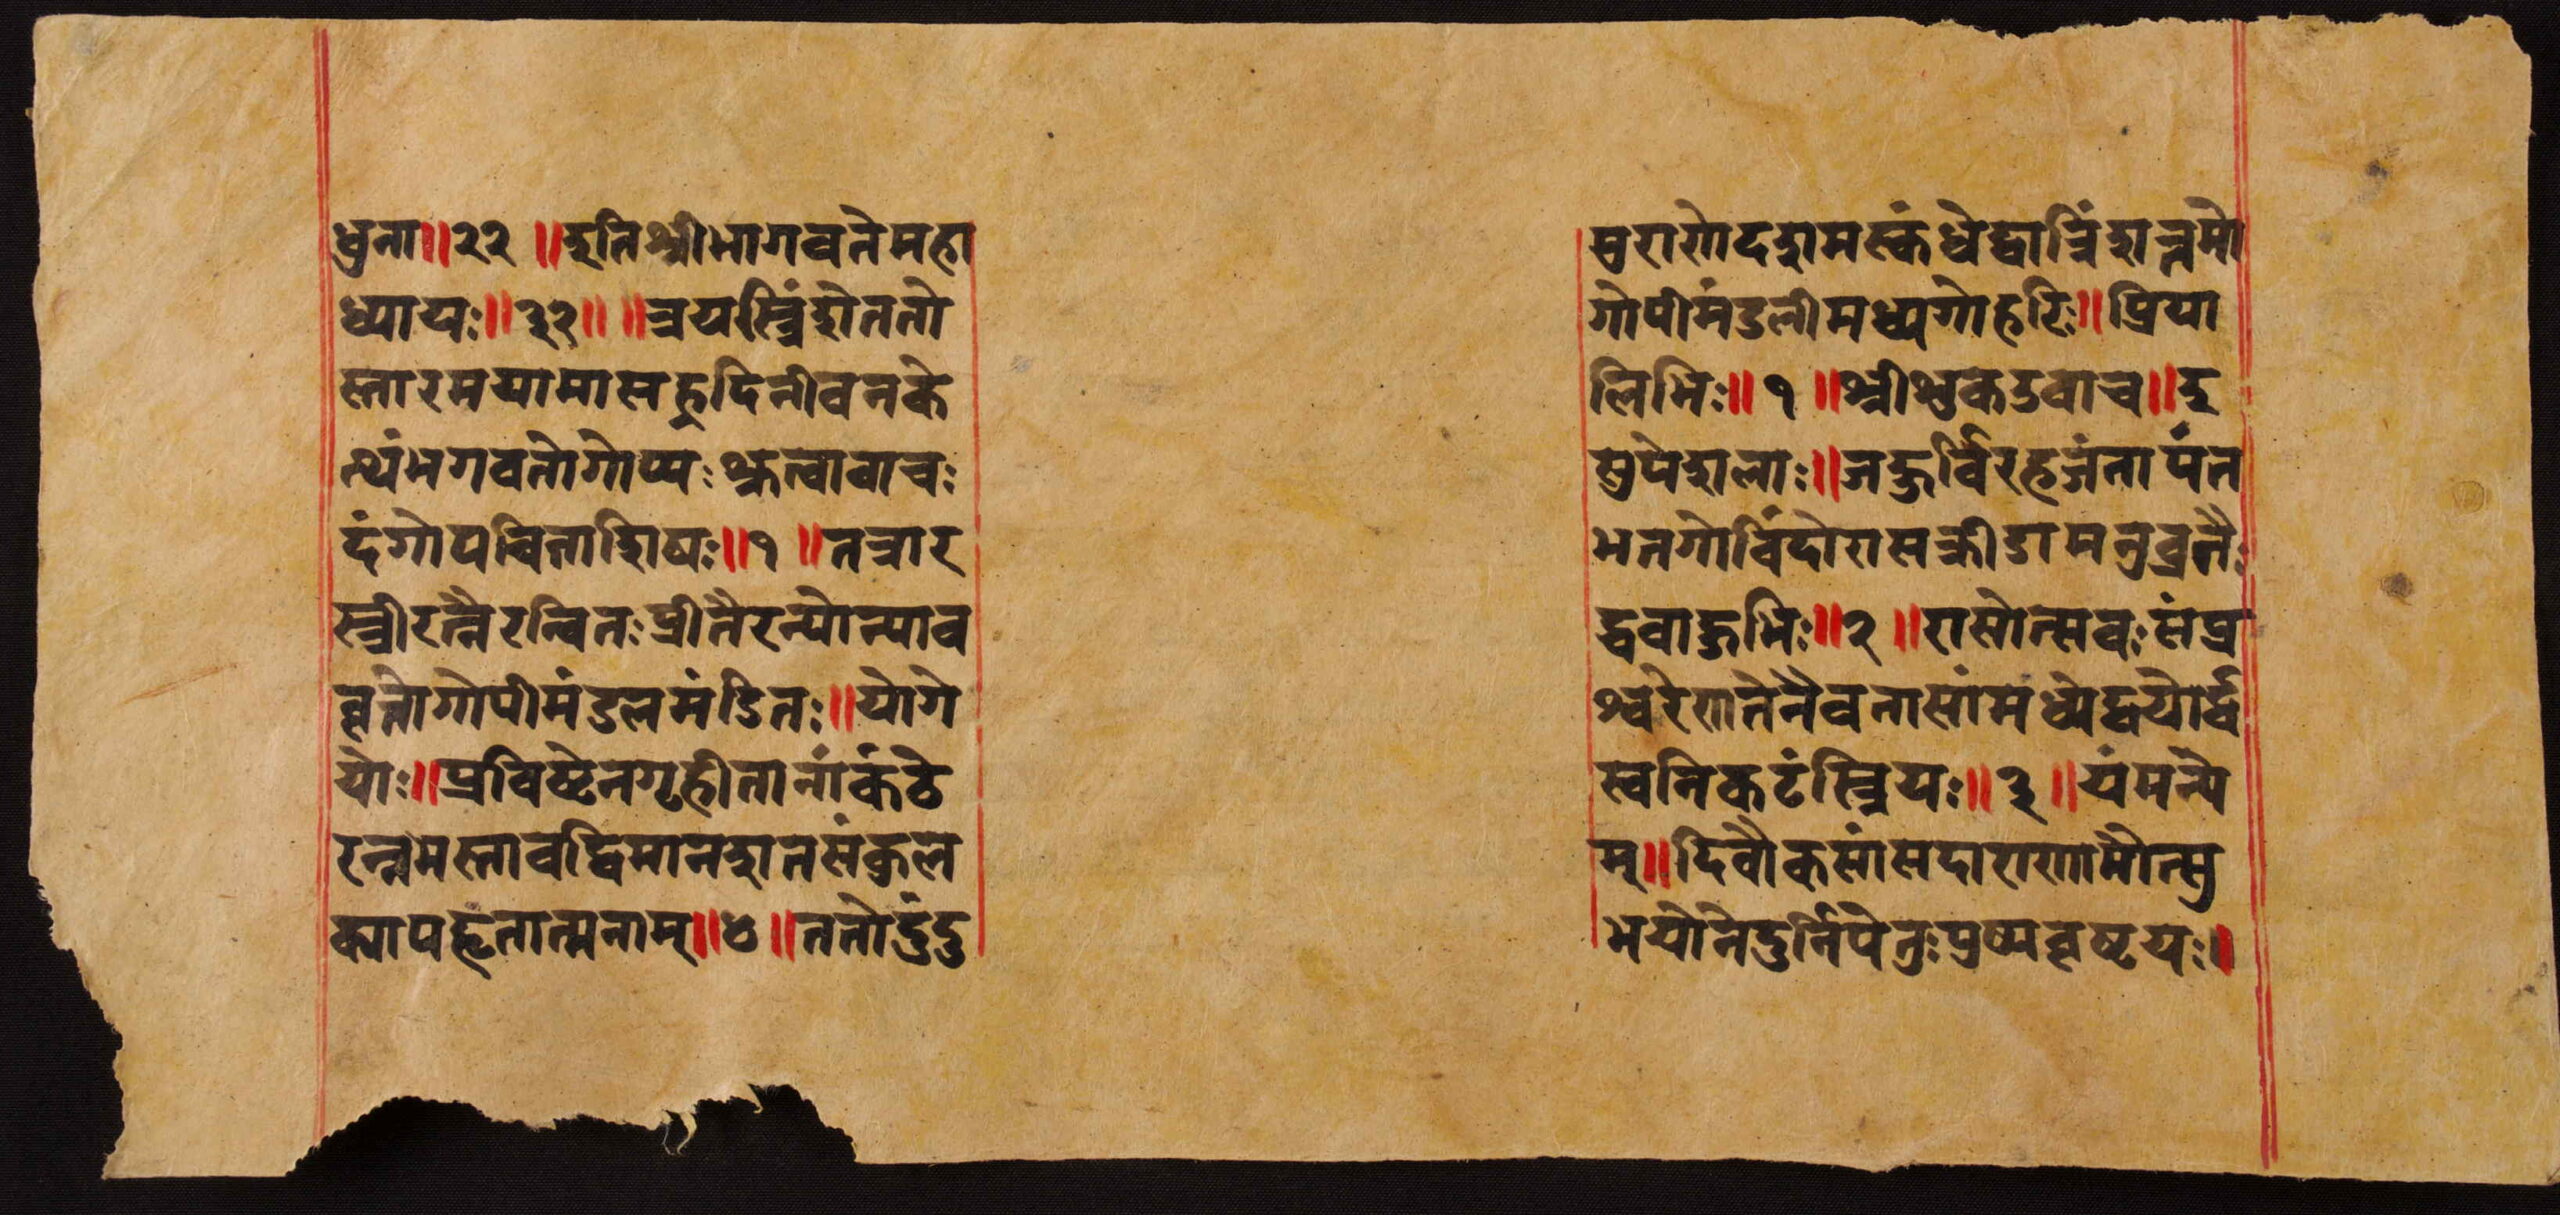 धुना॥२२॥इतिश्रीभागवतेमहा पुराणेदशमस्कंधेद्वात्रिंशत्तमो
ध्यायः॥३२॥ ॥त्रयस्त्रिंशेततो गोपीमंडलीमध्यगोहरिः॥प्रिया
स्तारमयामासह्रदिनीवनके लिभिः॥१॥श्रीशुकउवाच॥इ
त्थंभगवतोगोप्यःश्रुत्वावाचः सुपेशलाः॥जहुर्विरहजंतापंत
दंगोपचिताशिषः॥१॥तत्रार भतगोविंदोरासक्रीडामनुव्रतैः
स्त्रीरत्नैरन्वितःप्रीतैरन्योन्याव द्धवाहुभिः॥२॥रासोत्सवःसंप्र
वृत्तोगोपीमंडलमंडितः॥योगे श्वरेणतेनैवतासांमध्येद्वयोर्द्व
योः॥प्रविष्टेनगृहीतानांकंठे स्वनिकटंस्त्रियः॥३॥यंमन्ये
रन्नभस्तावद्विमानशतसंकुल म्॥दिवौकसांसदाराणामौत्सु
क्यापहृतात्मनाम्॥४॥ततोदुंदु भयोनेदुर्निपेतुःपुष्पवृष्टयः॥